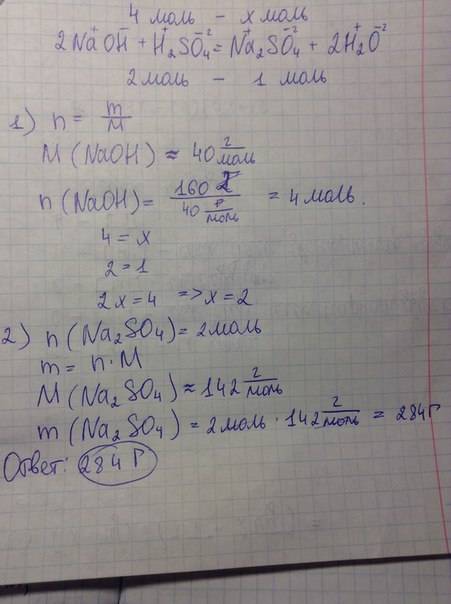 4 моль - x моль
2Na⁺OH⁻ + H₂⁺SO₄⁻² = Na₂⁺SO₄⁻² + 2H₂⁺O⁻²
2 моль - 1 моль
1) n = m/M
M (NaOH) ≈ 40 г/моль
n (NaOH) = 160 г / 40 г/моль = 4 моль.
4 = x
2 = 1
2x = 4 => x = 2
2) n (Na₂SO₄) = 2 моль
m = n · M
M (Na₂SO₄) ≈ 142 г/моль
m (Na₂SO₄) = 2 моль · 142 г/моль = 284 г
Ответ: 284 г